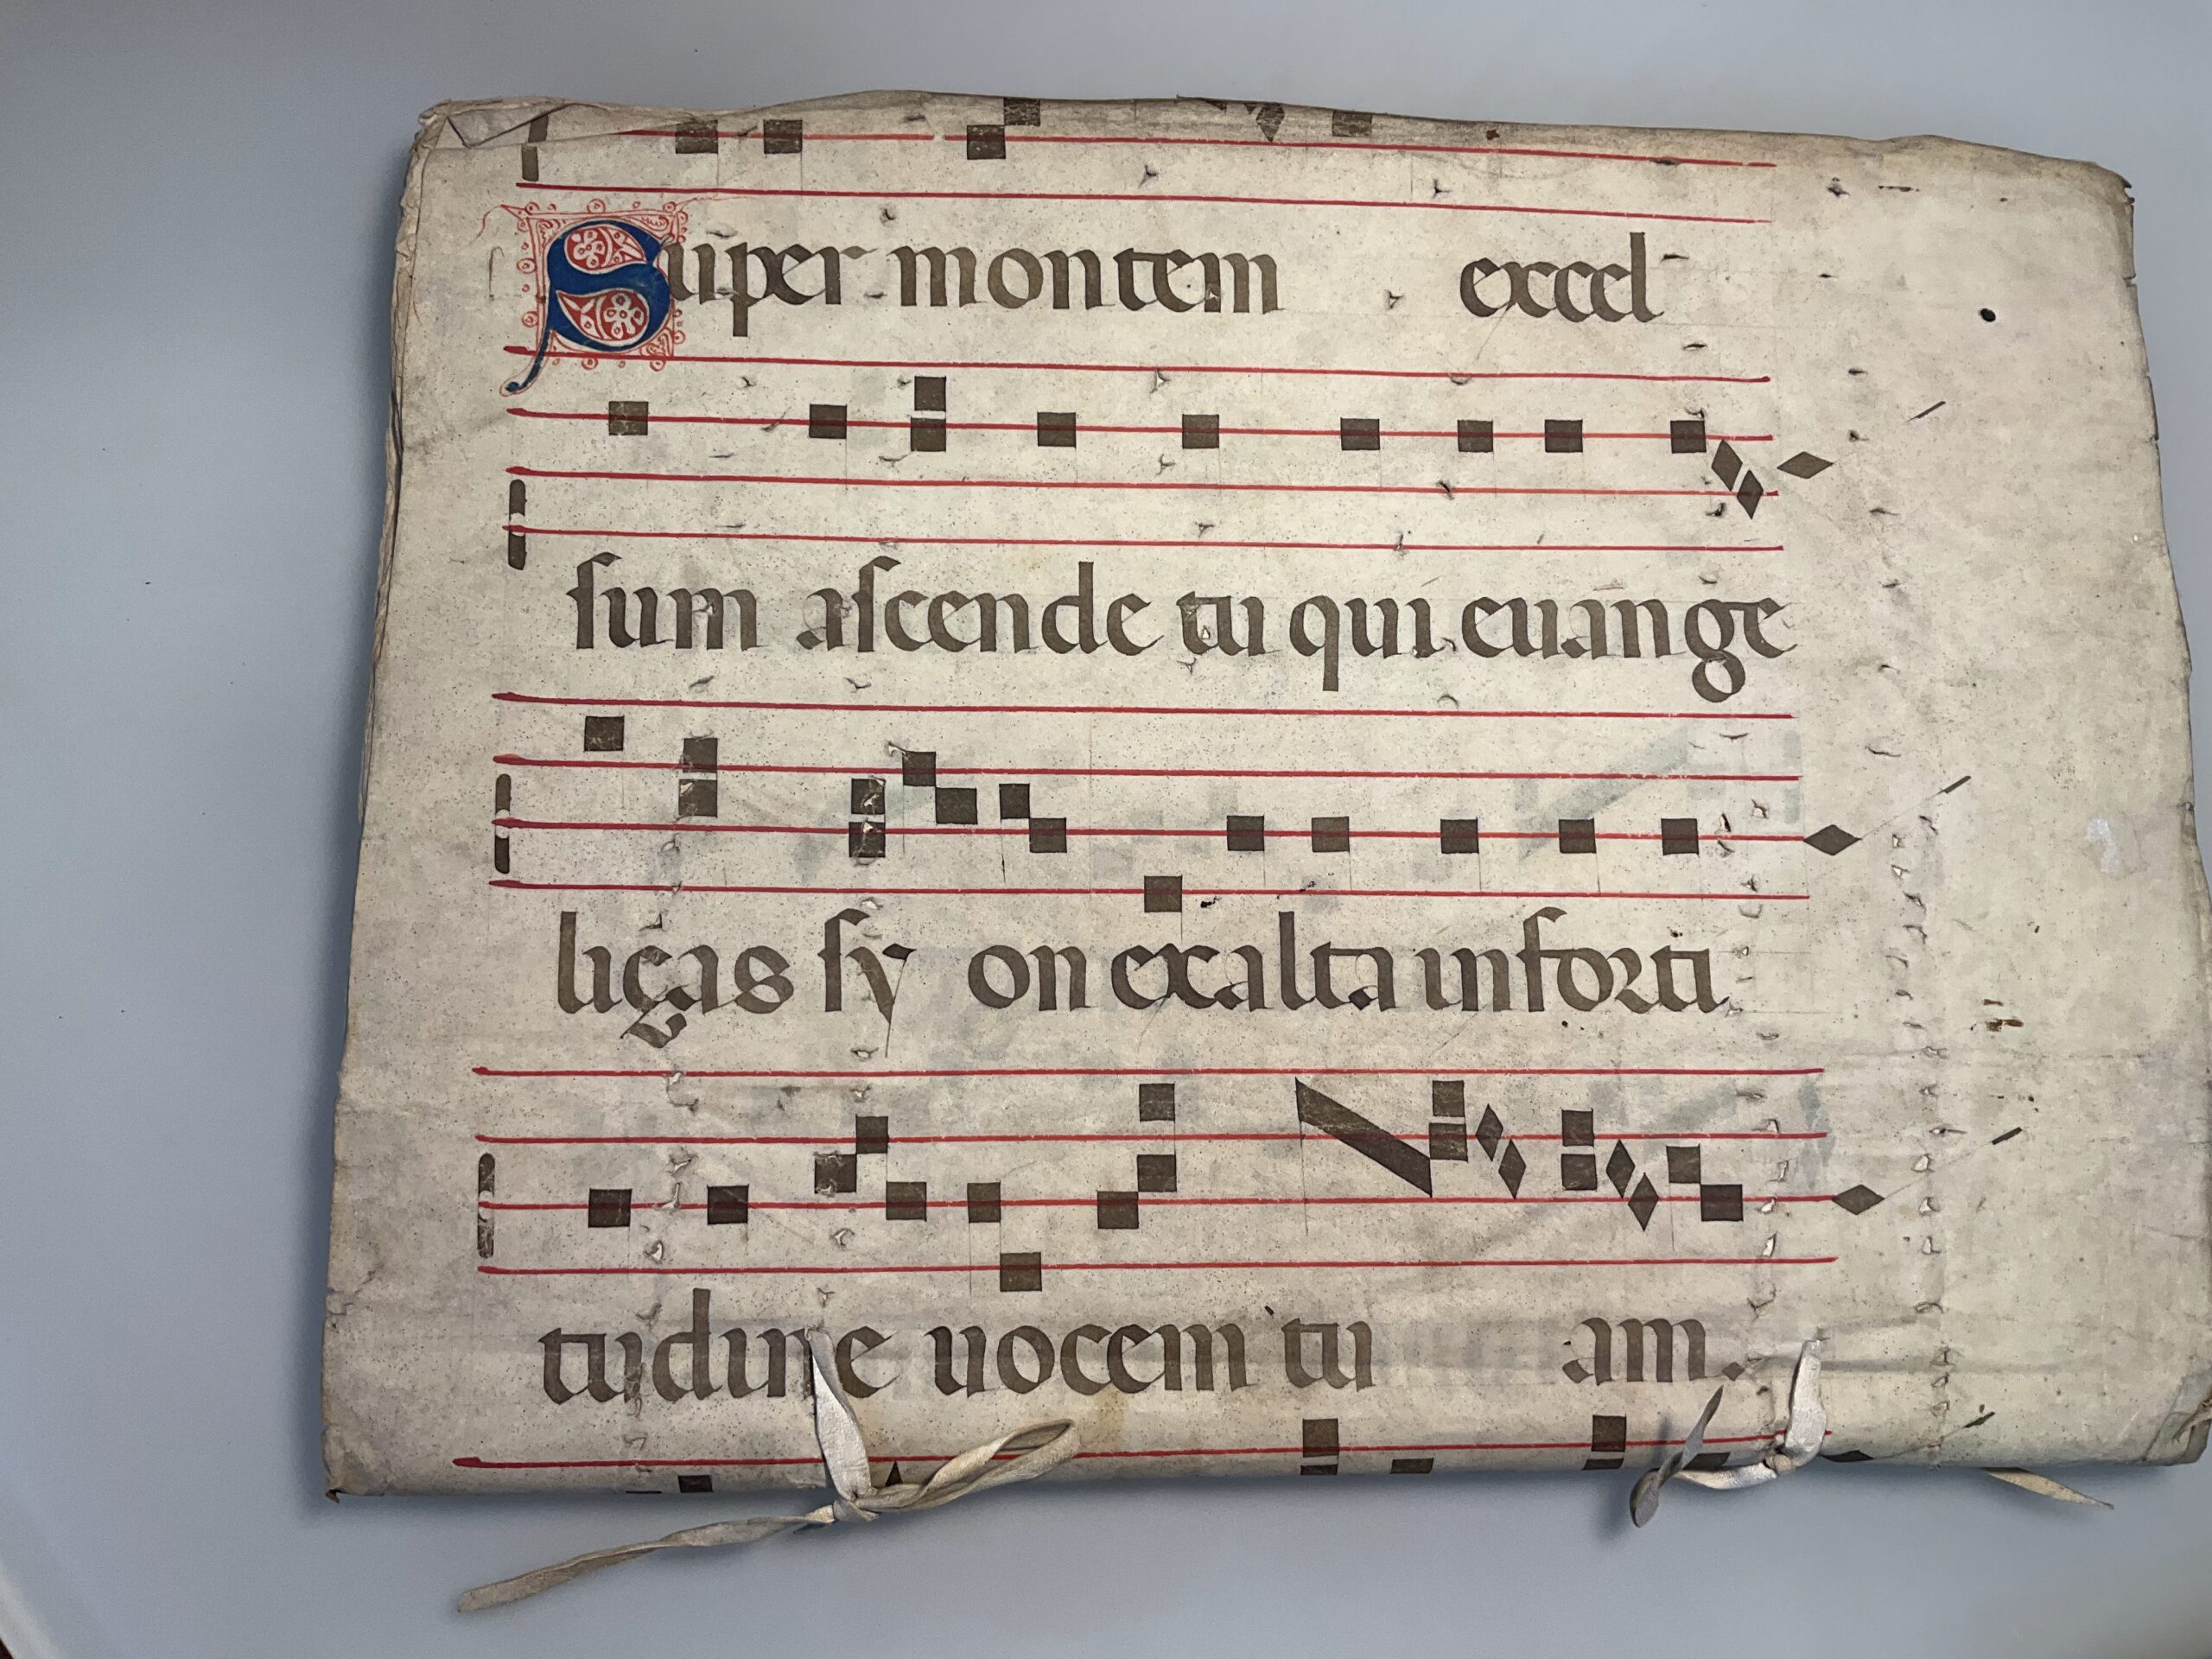 Super montem excel
ſum aſcende tu qui euange
ligas ſy on exalta in forti
tudine uocem tu am.